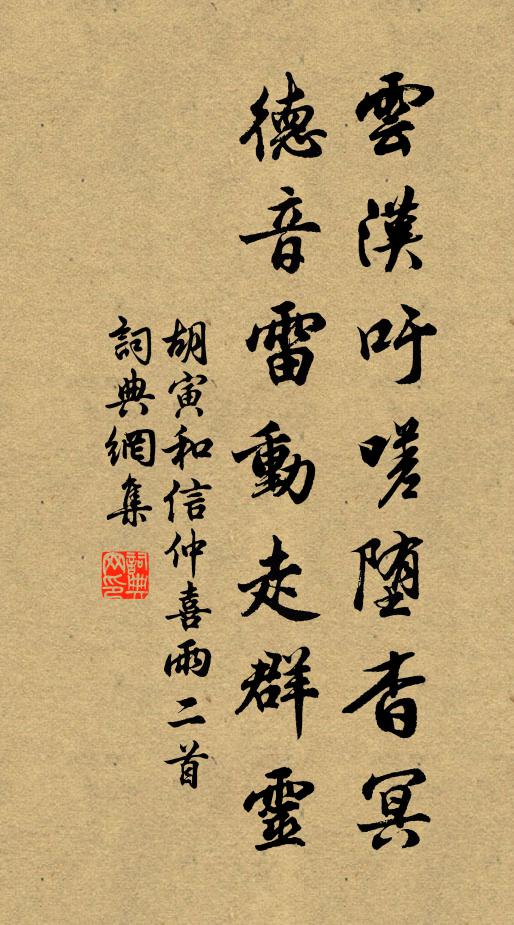 雲漢吁嗟墮杳冥
德音雷動走群靈
胡寅和信仲喜雨二首
詞典網集
詞典網印